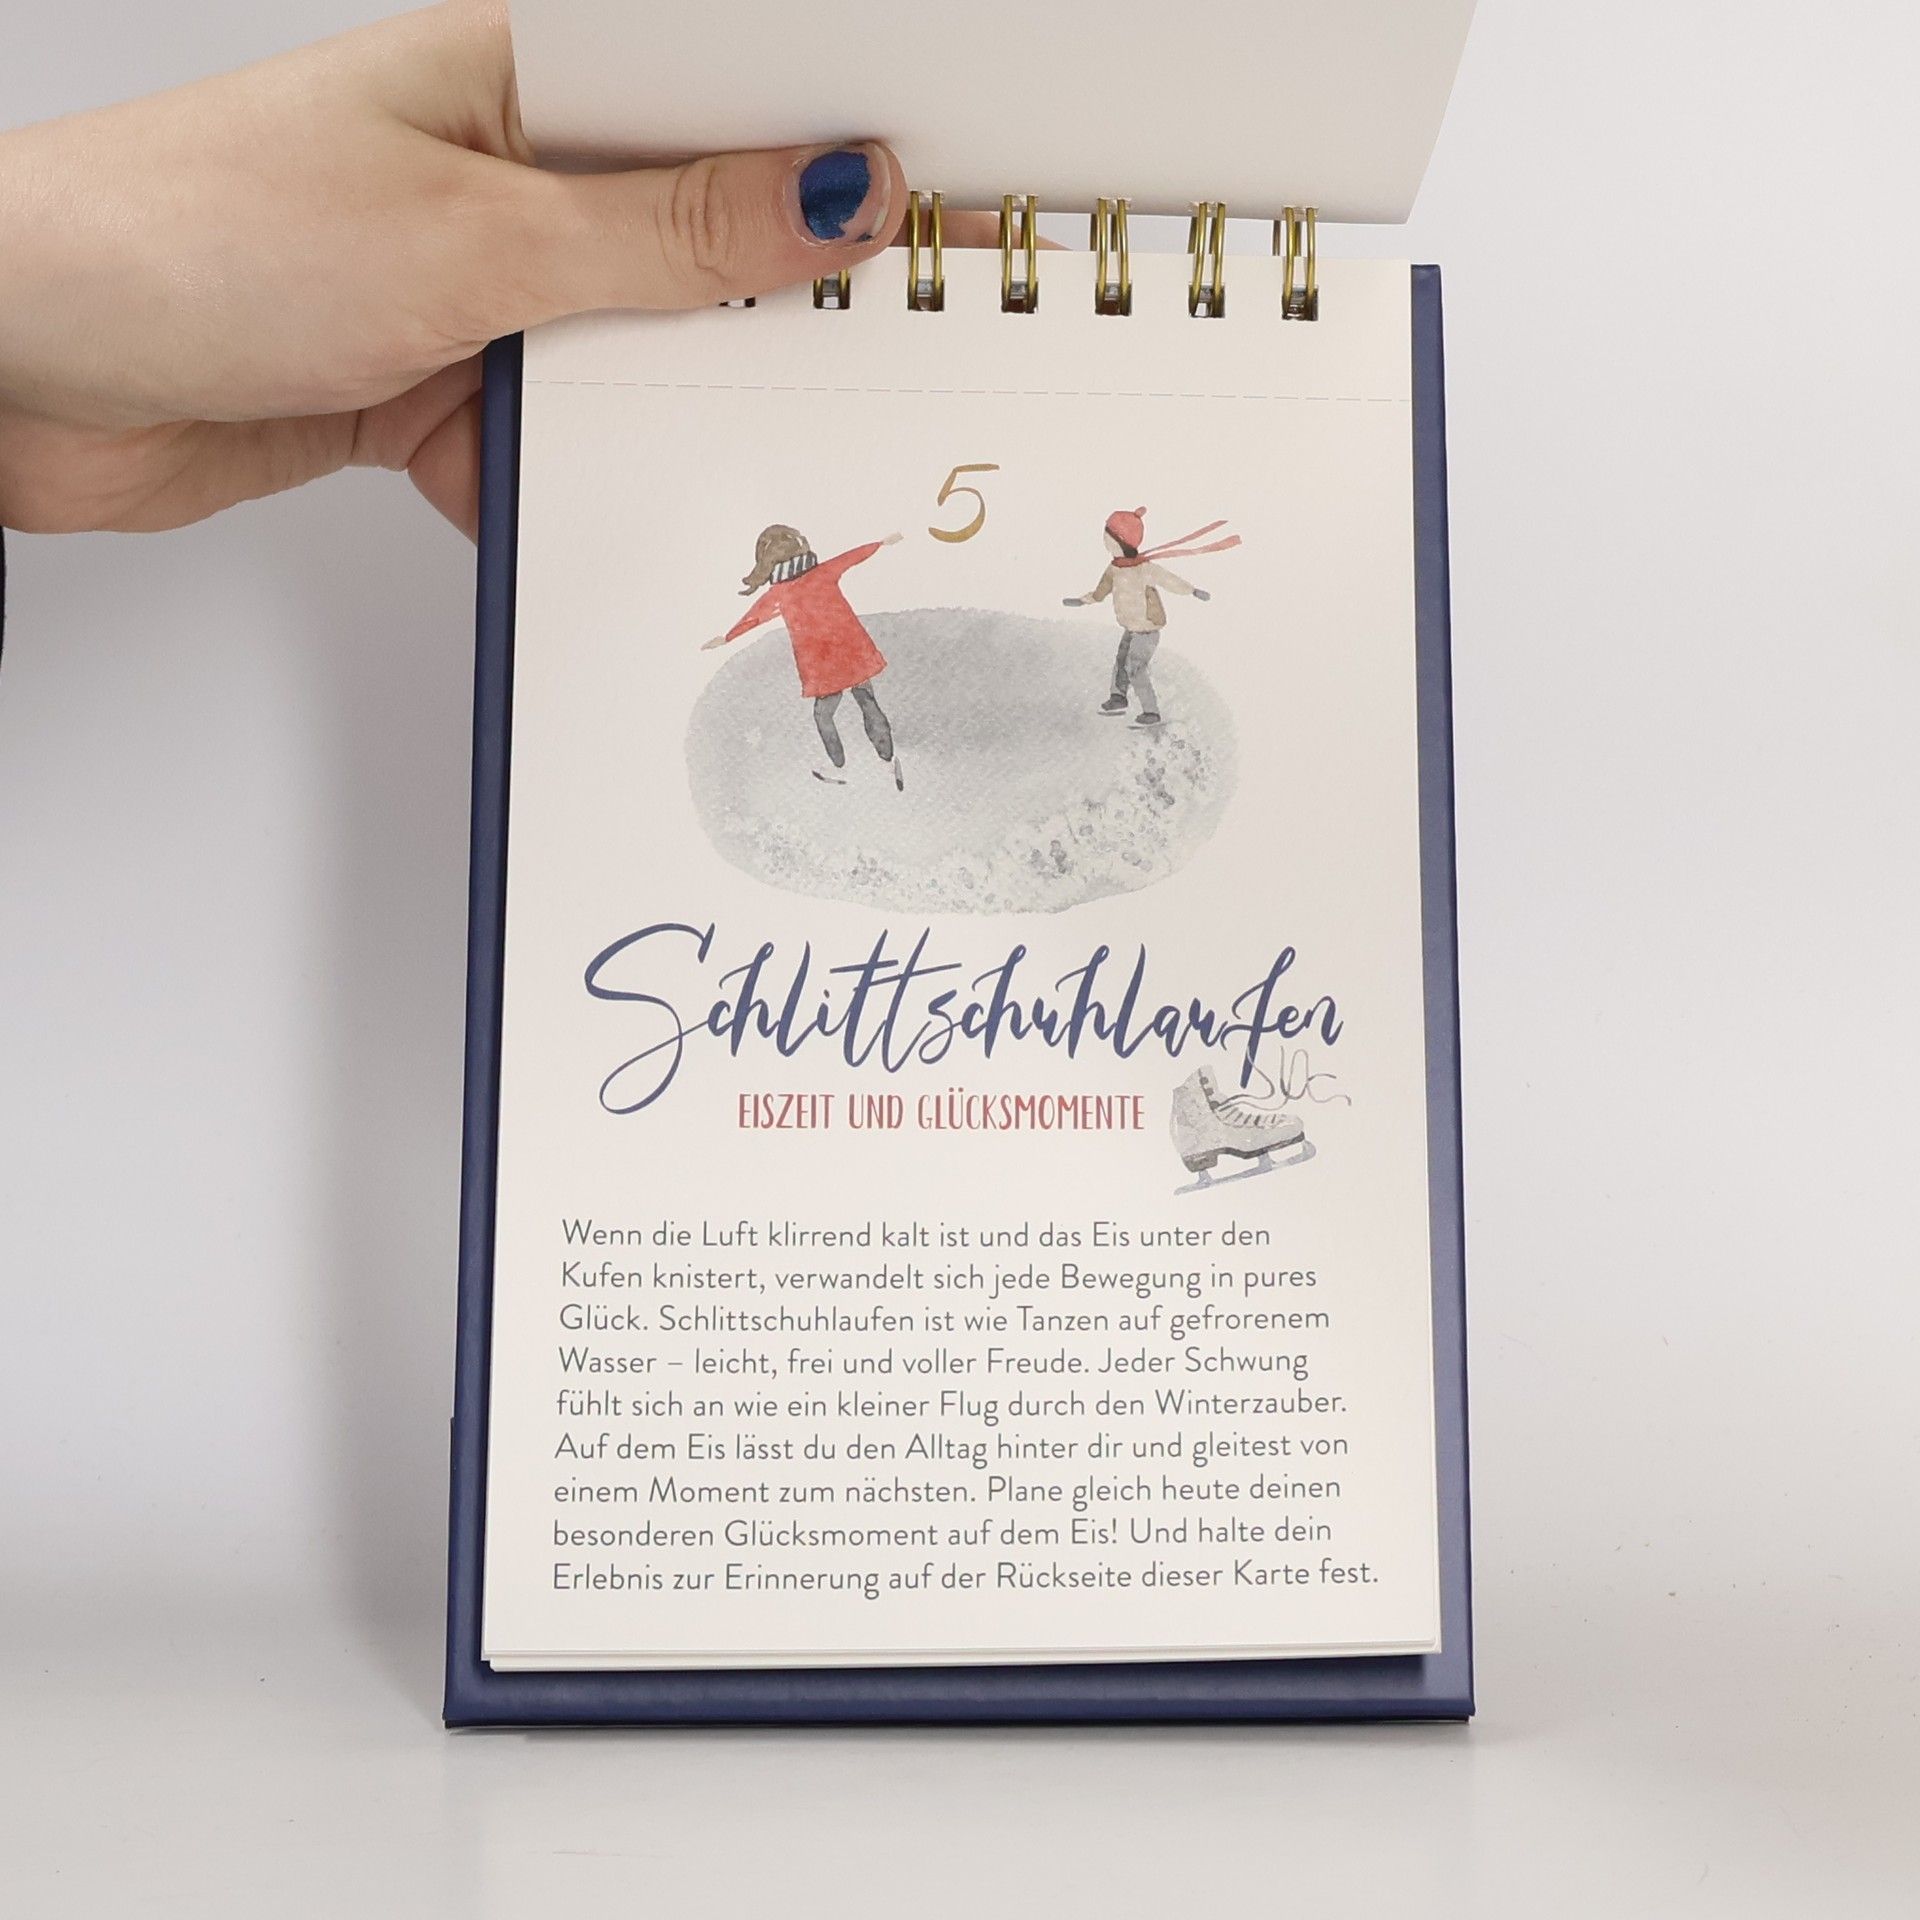 5
Schlittschuhlaufen
EISZEIT UND GLÜCKSMOMENTE
Wenn die Luft klirrend kalt ist und das Eis unter den
Kufen knistert, verwandelt sich jede Bewegung in pures
Glück. Schlittschuhlaufen ist wie Tanzen auf gefrorenem
Wasser – leicht, frei und voller Freude. Jeder Schwung
fühlt sich an wie ein kleiner Flug durch den Winterzauber.
Auf dem Eis lässt du den Alltag hinter dir und gleitest von
einem Moment zum nächsten. Plane gleich heute deinen
besonderen Glücksmoment auf dem Eis! Und halte dein
Erlebnis zur Erinnerung auf der Rückseite dieser Karte fest.